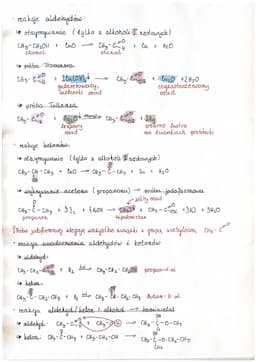 • reakcje aldehydów:
➔ otrzymywanie (tylko z alkoholi I rzędowych)
CH₃-CH₂OH + CuO → CH₃-C=O H + Cu + H₂O
etanol etanal
➔ próba Trommera
CH₃-C=O H + 2Cu(OH)₂ → CH₃-C=O OH + Cu₂O + 2H₂O
galaretowaty, niebieski osad ceglastoczerwony osad
➔ próba Tollensa
CH₃-C=O H + Ag₂O → CH₃-C=O OH + 2Ag
brązowy osad srebrne lustro na ściankach probówki
• reakcje ketonów:
➔ otrzymywanie (tylko z alkoholi II rzędowych)
CH₃-CH-CH₃ + CuO → CH₃-C-CH₃ + Cu + H₂O
OH O
➔ wykrywanie acetonu (propanonu) → próba jodoformowa
żółty osad
CH₃-C-CH₃ + 3I₂ + 4NaOH → CHI₃↓ + CH₃-C=O ONa + 3NaI + 3H₂O
propanon jodoform
Próbie jodoformowej ulegają wszystkie związki z grupą acetylową CH₃-C=O
• reakcja uwodornienia aldehydów i ketonów
➔ aldehyd:
CH₃-CH₂-C=O H + H₂ kat. → CH₃-CH₂-CH₂OH propan-1-ol
➔ keton:
CH₃-C-CH₂-CH₃ + H₂ kat. → CH₃-CH-CH₂-CH₃ butan-2-ol
O OH
• reakcja aldehyd/keton + alkohol → hemiacetal
➔ aldehyd: CH₃-C=O H + CH₃-OH → CH₃-C-O-CH₃
➔ keton: CH₃-C-CH₃ + CH₃-CH₂-OH → CH₃-C-O-CH₂-CH₃